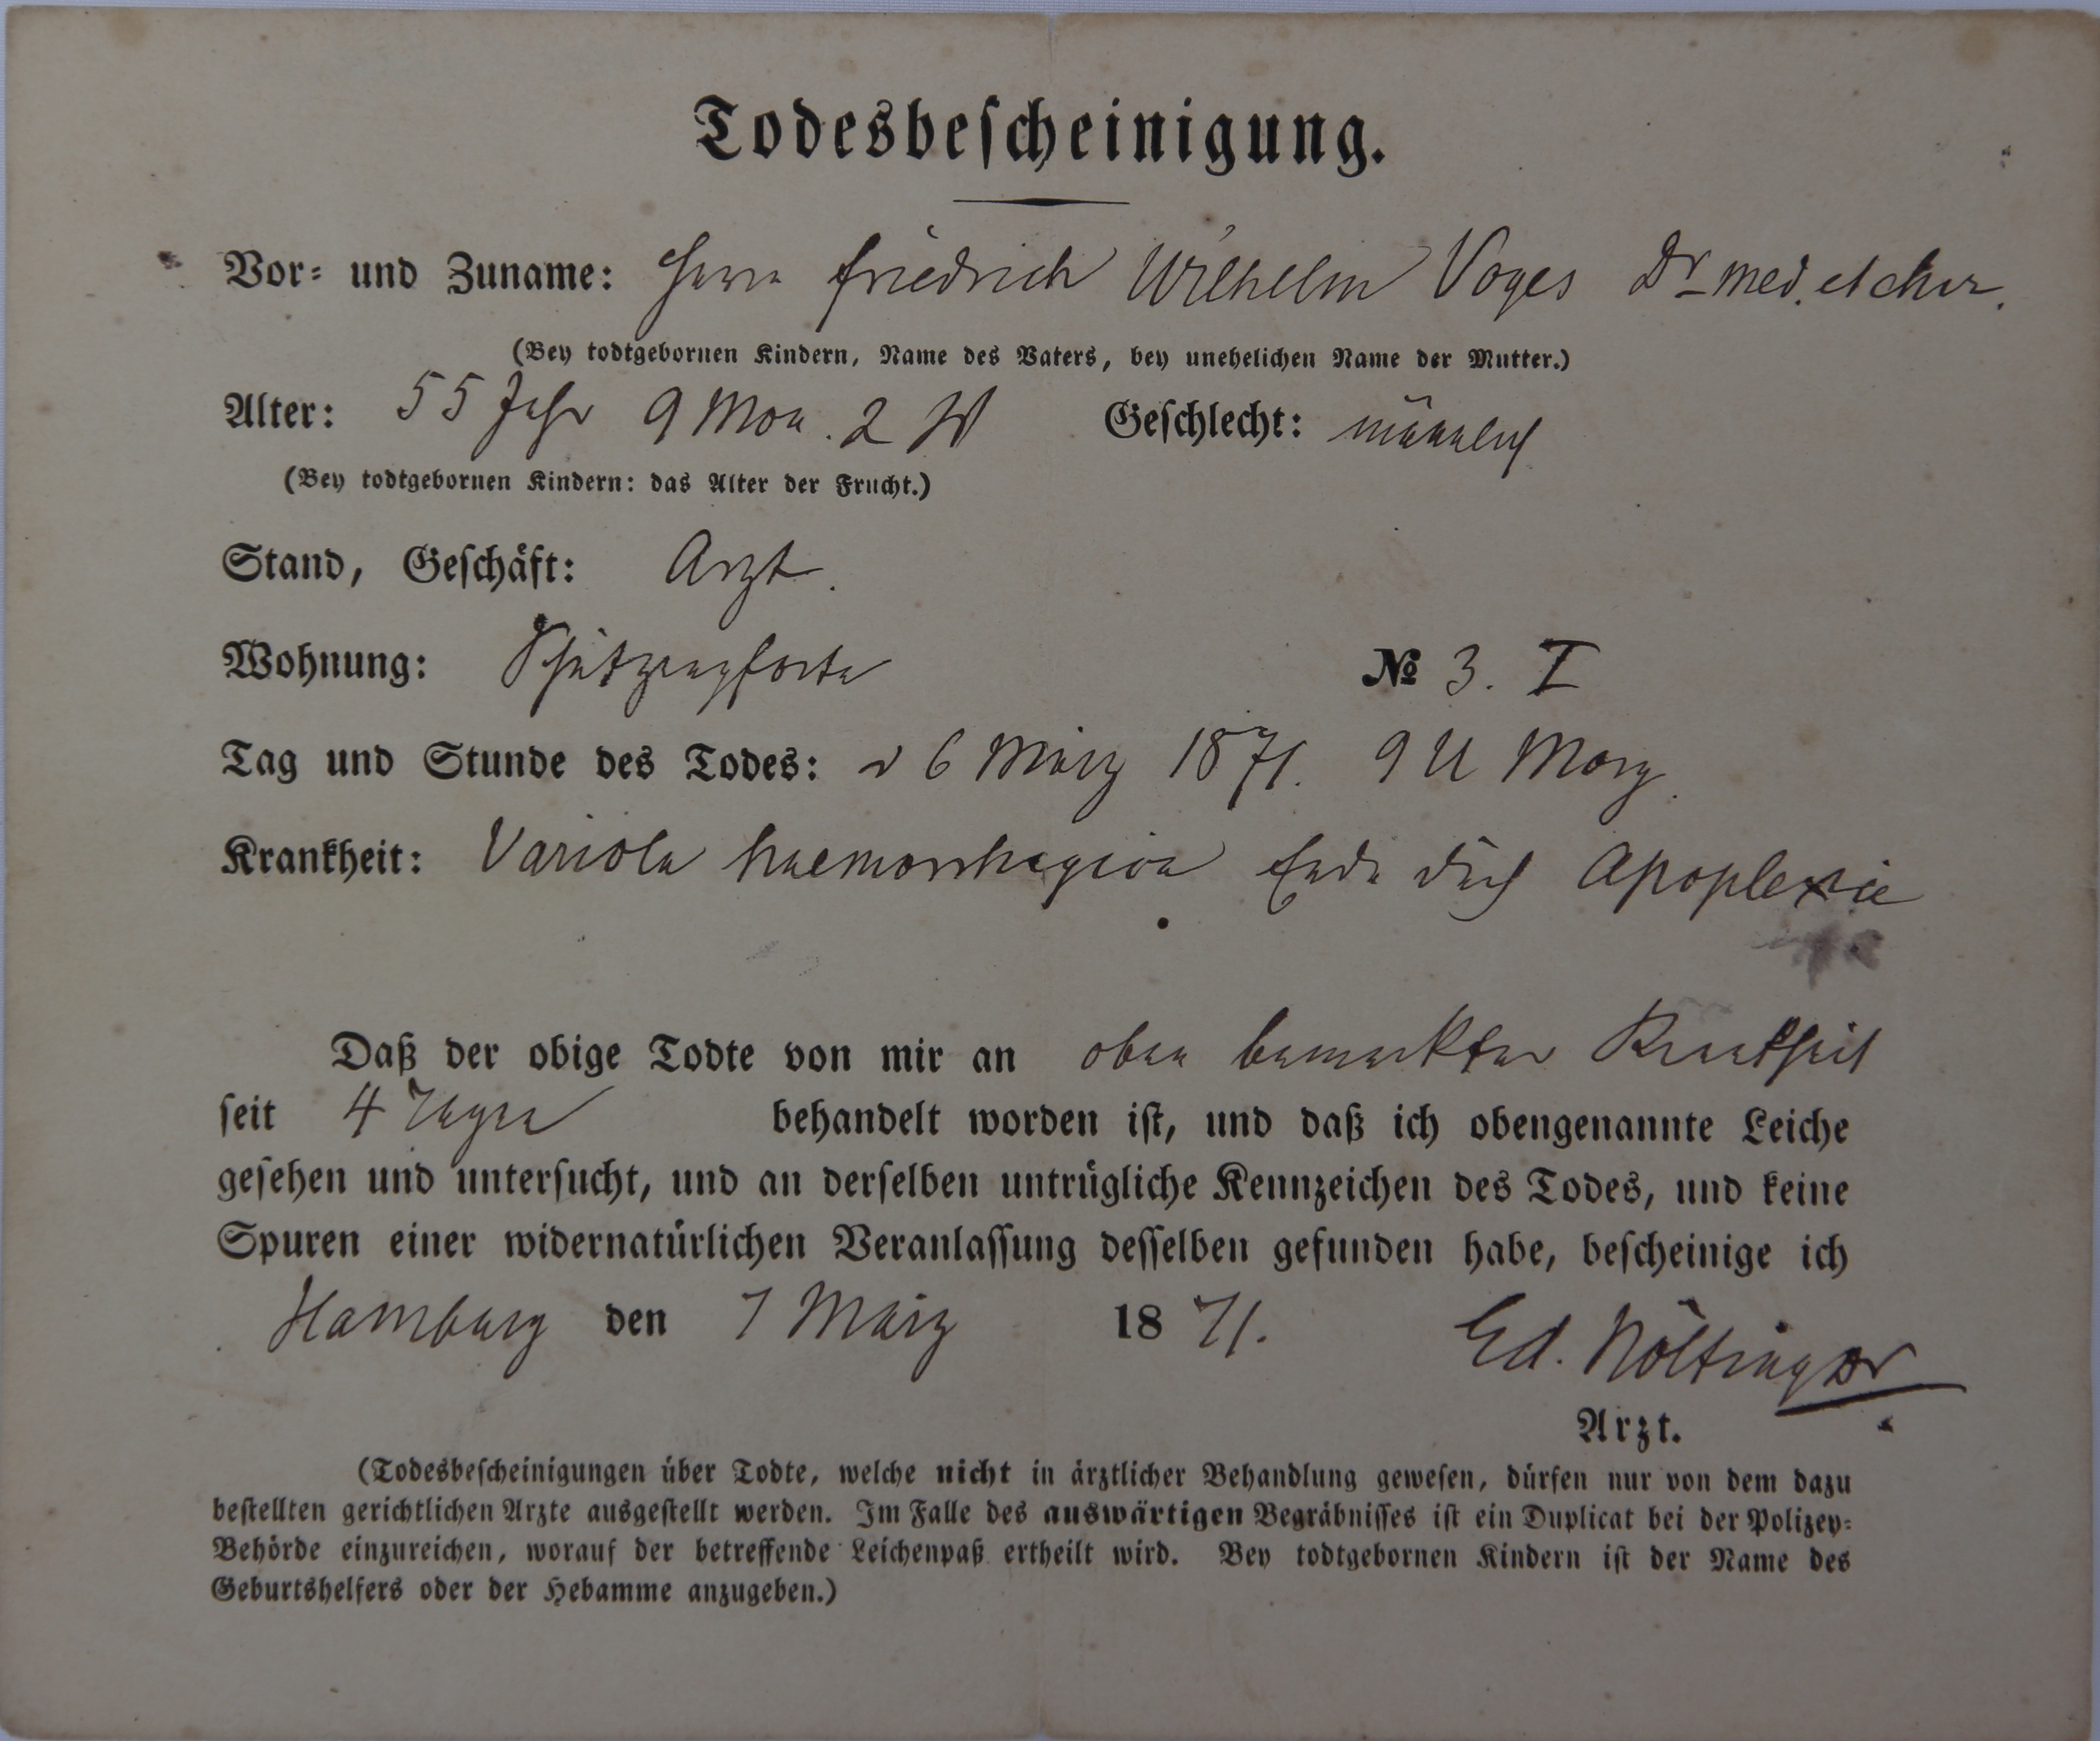 Todesbescheinigung.
Vor- und Zuname: Herrn Friedrich Wilhelm Voges Dr med. et chir.
(Bey todtgebornen Kindern, Name des Vaters, bey unehelichen Name der Mutter.)
Alter: 55 Jahr 9 Mon. 2 W Geschlecht: männlich
(Bey todtgebornen Kindern: das Alter der Frucht.)
Stand, Geschäft: Arzt.
Wohnung: Schützenpforte № 3. I
Tag und Stunde des Todes: d 6 März 1871. 9 U Morg.
Krankheit: Variola haemorrhagica Ende durch Apoplexie
Daß der obige Todte von mir an oben bemerkter Krankheit
seit 4 Tagen behandelt worden ist, und daß ich obengenannte Leiche
gesehen und untersucht, und an derselben untrügliche Kennzeichen des Todes, und keine
Spuren einer widernatürlichen Veranlassung desselben gefunden habe, bescheinige ich
Hamburg den 7 März 1871. Ed. Nöltingar
Arzt.
(Todesbescheinigungen über Todte, welche nicht in ärztlicher Behandlung gewesen, dürfen nur von dem dazu
bestellten gerichtlichen Arzte ausgestellt werden. Im Falle des auswärtigen Begräbnisses ist ein Duplicat bei der Polizey-
Behörde einzureichen, worauf der betreffende Leichenpaß ertheilt wird. Bey todtgebornen Kindern ist der Name des
Geburtshelfers oder der Hebamme anzugeben.)